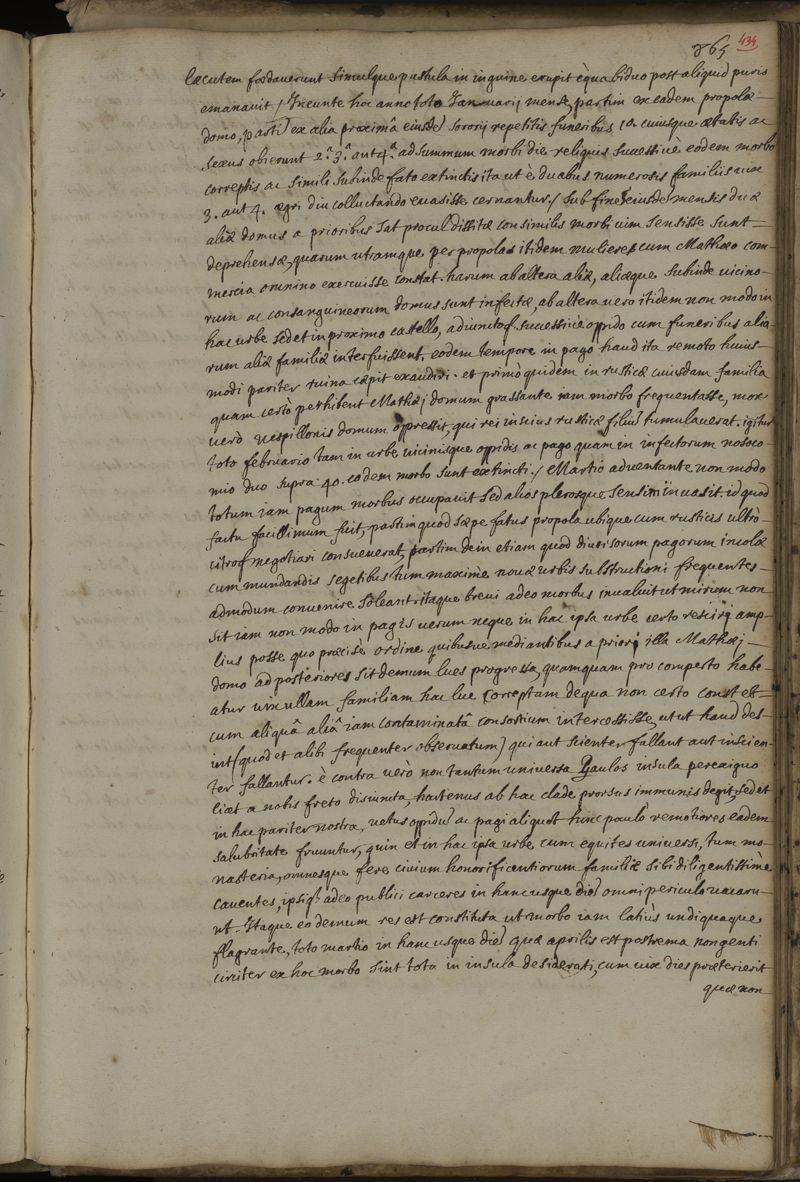 865 434
læ cutem fœdaverunt simulque pustula in inguine erupit è qua biduo post aliquid puris
emanavit / Ineunte hoc anno toto Januarij mense, partim ex eadem propolæ
domo, partī ex alia proxima eiusdē sororij repetitis funeribus 10. cuiusque ætatis ac
sexus obierunt 2.ª 3.ª aut 4.ª ad summum morbi die reliquis successive eodem morbo
correptis ac simili subinde fato extinctis ita ut è duabus numerosis familiis vix
3. aut 4. ægri diu colluctando evasisse cernantur. / Sub finē eiusdē mensis duæ
aliæ domus a prioribus sat procul dissitæ consimilis morbi vim sensisse sunt
deprehensæ, quarum utramque per propolas itidem mulieres cum Mathæo com-
mercia omnino exercuisse constat. harum ab altera aliæ, aliæque subinde vicino-
rum ac consanguineorum domus sunt infectæ, ab altera vero itidem non modo in
hac urbe sed et in proximo castello, adiunctoq. successive oppido cum funeribus alia-
rum aliæ familiæ interfuissent. eodem tempore in pago haud ita remoto huius-
modi pariter ruina cæpit exaudiri. et primò quidem in rusticæ cuiusdam familia
quam certò perhibent Mathæj domum grassante iam morbo frequentasse, mox
verò vespillonis domum oppressit, qui rei inscius rusticæ filiū tumulaverat. igitur
toto februario tam in urbe vicinisque oppidis ac pago quam in infectorum nosoco-
mio duo supra 40. eodem morbo sunt extincti. / Martio adventante non modo
totum iam pagum morbus occupavit sed alios plerosque sensim invasit. id quod
factu facillimum fuit, partim quod sæpe fatus propola ubique cum rusticis ultrò
citroq. negotiari consueverat, partim dein etiam quod diversorum pagorum incolæ
cum mundandis segetibus tum maxime novæ urbis substructioni frequentes
admodum convenire soleant. itaque brevi adeo morbus invaluit ut mirum non
sit iam non modo in pagis verum neque in hac ipsa urbe certo resciri amp-
lius posse quo præcisè ordine quibusve mediantibus a priori illa Mathæj
domo ad posteriores sit demum lues progressa, quamquam pro comperto habe-
atur vix ullam familiam hac lue correptam de qua non certo constet
cum aliquâ aliâ iam contaminatâ consortium intercessisse, ut ut haud des-
int (quod et alibi frequenter observatum) qui aut scienter fallant aut inscien-
ter fallantur. è contra verò non tantum universa Gaulos insula perexiguo
licet a nobis freto disiuncta, hactenus ab hac clade prorsus immunis degit, sed et
in hac pariter nostra, vetus oppidū ac pagi aliquot hinc paulò remotiores eadem
salubritate fruuntur, quin et in hac ipsa urbe cum equites universi, tum mo-
nasteria, omnesque fere civium honorificentiorum familiæ sibi diligentissimè
caventes, ipsiq. adeo publici carceres in hancusque diē omni periculo vacaru-
nt. Itaque eo demum res est constituta ut morbo iam latiùs undiquaque
flagrante, toto martio in hancusque diē quæ aprilis est postrema nongenti
circiter ex hoc morbo sint tota in insulâ desiderati, cum vix dies præterierit
quæ non